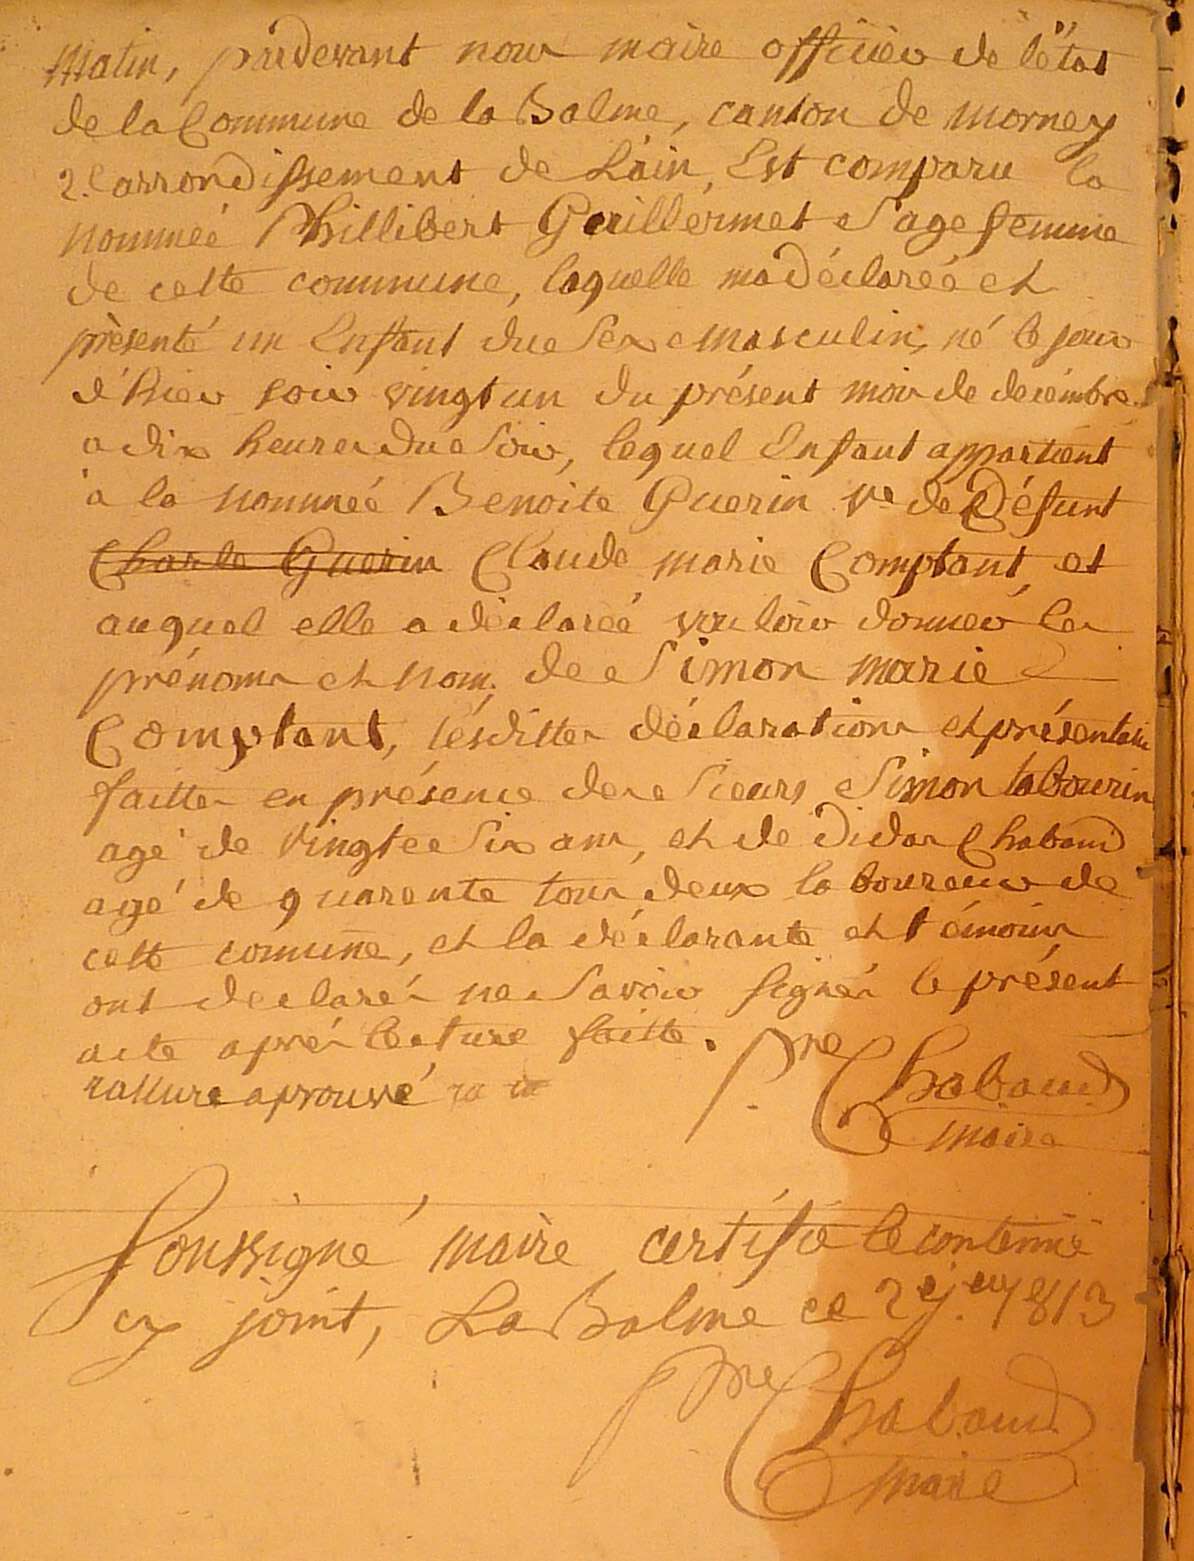 matin, pardevant nous maire officier de l'état
de la Commune de la Balme, canton de mornay
2.e arrondissement de L'ain, Est comparu la
nommée Phillibert Guillermet Sage femme
de cette commune, laquelle ma déclarée et
présenté un Enfant du Sex masculin, né le jour
d'hier soir vingt un du présent mois de decémbre
a dix heures du Soir, lequel Enfant appartient
à la nommée Benoite Guerin Ve de Défunt
Charle Guerin Claude marie Comptant, et
auquel elle a déclaréé vouloir donner les
prénoms et nom de Simon marie
Comptant, lesdittes déclarations et présentation
faittes en présence des Sieurs Simon labourin
agé de vingte Six ans, et de didas Chabaud
agé de quarente tous deux laboureurs de
cette comune, et la déclarante et témoins
ont declarés ne Savoir signér le présent
acte aprés lecture faitte.
rallure aprouvé
Pre Chabaud
maire
Soussigné maire certifie le contennü
cy joint, La Balme ce 2 j.er 1813
pre Chabaud
maire